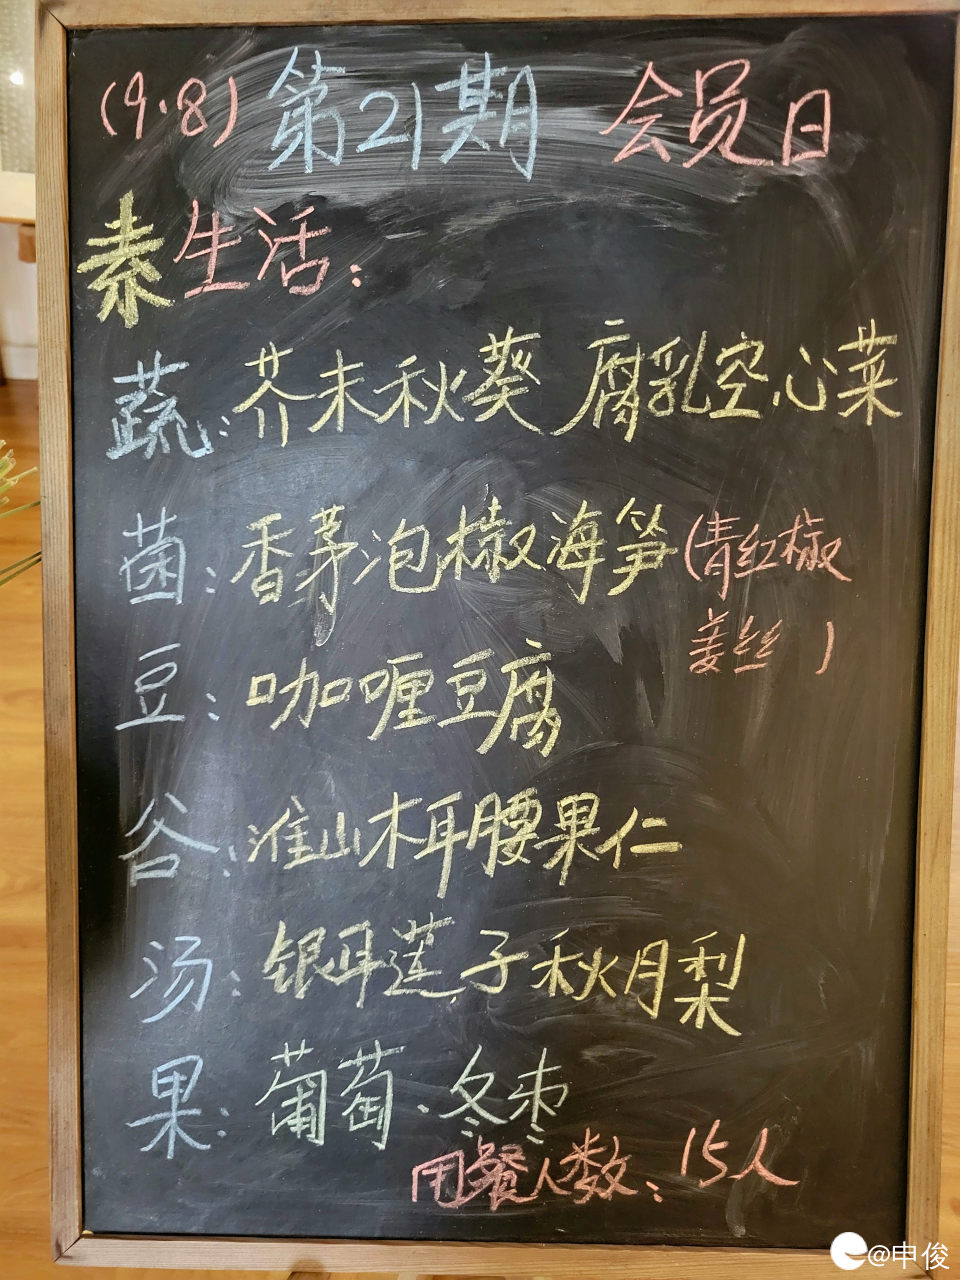 (9.8) 第21期 会员日
素生活:
蔬: 芥末秋葵 腐乳空心菜
菌: 香茅泡椒海笋(青红椒
姜丝)
豆: 咖喱豆腐
谷: 淮山木耳腰果仁
汤: 银耳莲子秋月梨
果: 葡萄.冬枣
用餐人数: 15人
@申俊